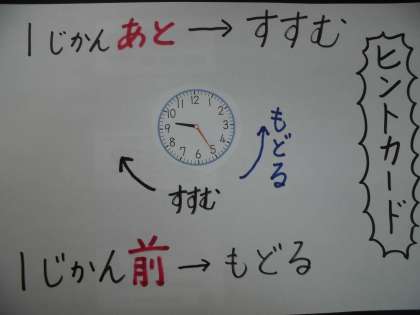 1じかんあと→すすむ
ヒントカード
12
1
2
3
4
5
6
7
8
9
10
11
もどる
すすむ
1じかん前→もどる